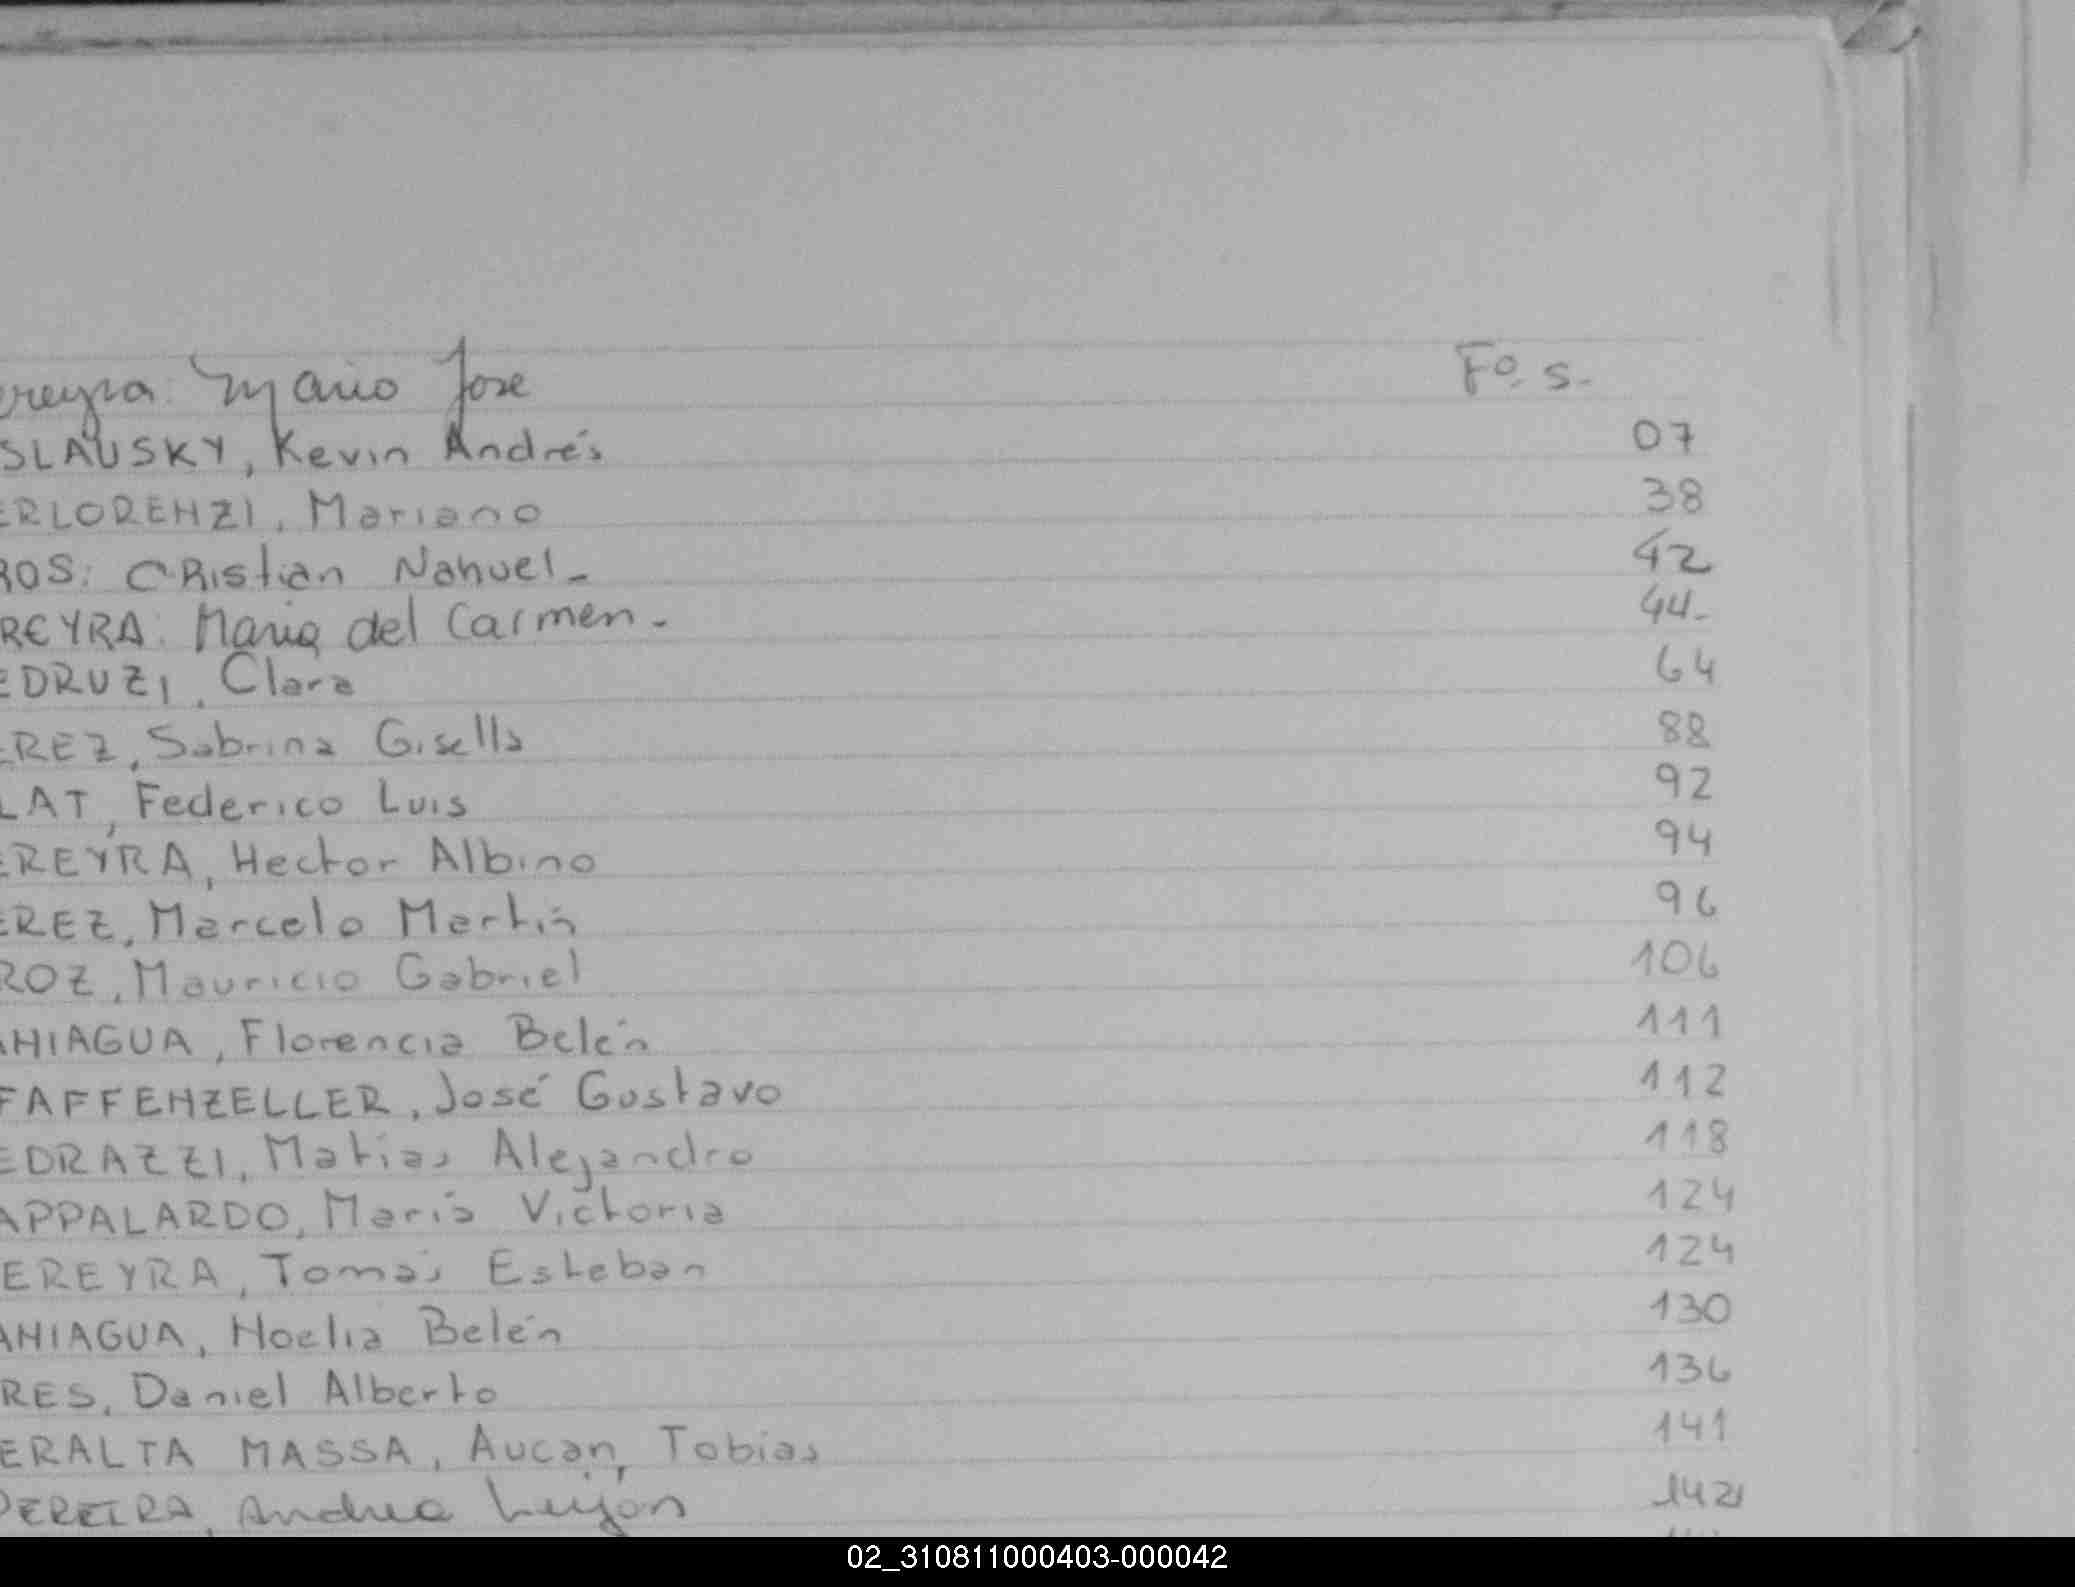 ereyra: Mario Jose Fº. 5.-
SLAUSKY, Kevin Andrés 07
ERLORENZI, Mariano 38
ROS: CRistian Nahuel - 42
REYRA: Maria del Carmen - 44-
EDRUZI, Clara 64
EREZ, Sabrina Gisella 88
LAT, Federico Luis 92
EREYRA, Hector Albino 94
EREZ, Marcelo Martín 96
ROZ, Mauricio Gabriel 106
ANIAGUA, Florencia Belén 111
FAFFENZELLER, José Gustavo 112
EDRAZZI, Matías Alejandro 118
APPALARDO, María Victoria 124
EREYRA, Tomás Esteban 124
ANIAGUA, Noelia Belén 130
RES, Daniel Alberto 136
ERALTA MASSA, Aucan, Tobias 141
PEREIRA, Andrea Lujan 142
02_310811000403-000042